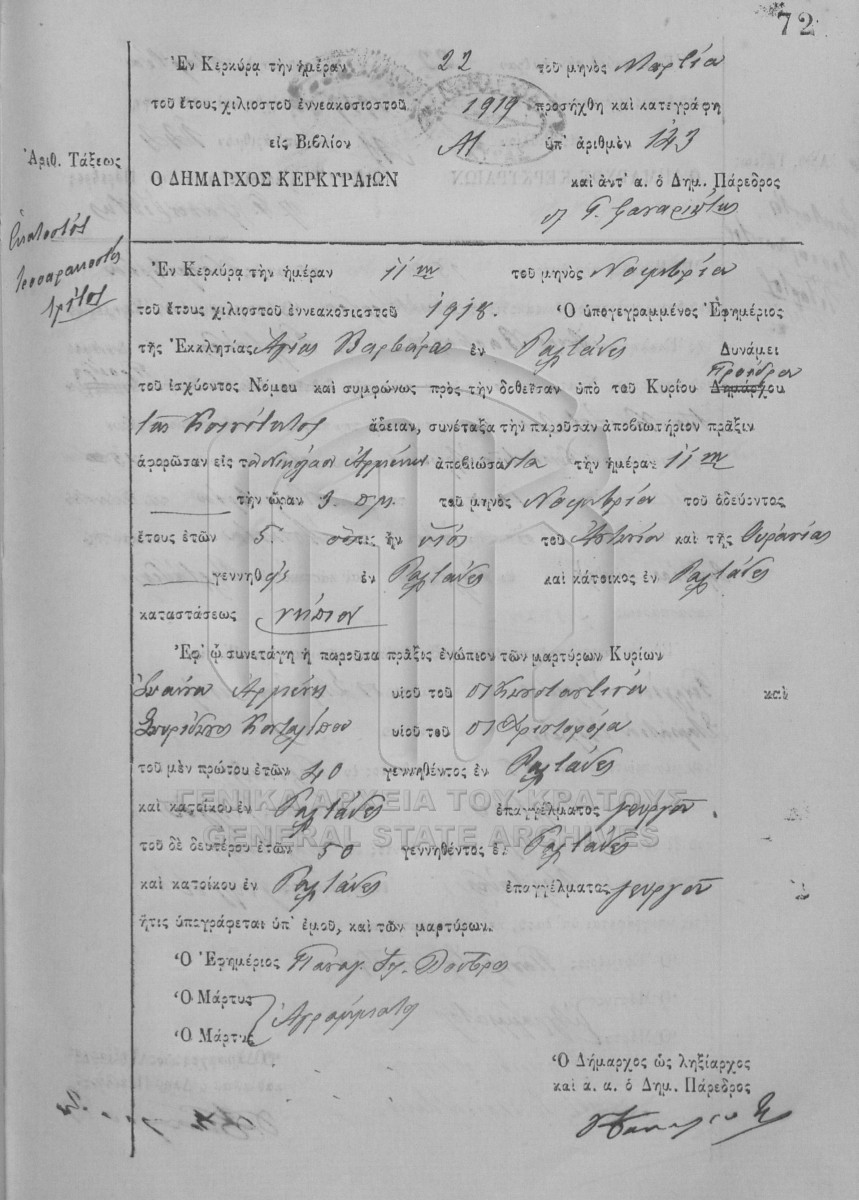 72
Ἐν Κερκύρᾳ τὴν ἡμέραν 22 τοῦ μηνὸς Μαρτίου
τοῦ ἔτους χιλιοστοῦ ἐννεακοσιοστοῦ 1919 προσήχθη καὶ κατεγράφη
εἰς Βιβλίον Μ ὑπ' ἀριθμὸν 143
Ἀριθ. Τάξεως
Ὁ ΔΗΜΑΡΧΟΣ ΚΕΡΚΥΡΑΙΩΝ καὶ ἀντ' α. ὁ Δημ. Πάρεδρος
Ἑκατοστὸς
τεσσαρακοστὸς
τρίτος
Ἐν Κερκύρᾳ τὴν ἡμέραν 11ην τοῦ μηνὸς Νοεμβρίου
τοῦ ἔτους χιλιοστοῦ ἐννεακοσιοστοῦ 1918. Ὁ ὑπογεγραμμένος Ἐφημέριος
τῆς Ἐκκλησίας Ἁγίας Βαρβάρας ἐν Δυνάμει
τοῦ ἰσχύοντος Νόμου καὶ συμφώνως πρὸς τὴν δοθεῖσαν ὑπὸ τοῦ Κυρίου Δημάρχου Προέδρου
τῆς Κοινότητος ἄδειαν, συνέταξα τὴν παροῦσαν ἀποβιωτήριον πρᾶξιν
ἀφορῶσαν εἰς τὸν Νικόλαον Ἀρμένην ἀποβιώσαντα τὴν ἡμέραν 11ην
τὴν ὥραν 3 π.μ. τοῦ μηνὸς Νοεμβρίου τοῦ ὁδεύοντος
ἔτους ἐτῶν 5. ὅστις ἦν υἱὸς τοῦ Ἀντωνίου καὶ τῆς Οὐρανίας
γεννηθεὶς ἐν καὶ κάτοικος ἐν
καταστάσεως νήπιον
Ἐφ' ᾧ συνετάγη ἡ παροῦσα πρᾶξις ἐνώπιον τῶν μαρτύρων Κυρίων
Ἰωάννου Ἀρμένη υἱοῦ τοῦ Κωνσταντίνου καὶ
Σπυρίδωνος υἱοῦ τοῦ Χριστοφόρου
τοῦ μὲν πρώτου ἐτῶν 40 γεννηθέντος ἐν
καὶ κατοίκου ἐν ἐπαγγέλματος γεωργοῦ
ΓΕΝΙΚΑ ΑΡΧΕΙΑ ΤΟΥ ΚΡΑΤΟΥΣ
GENERAL STATE ARCHIVES
τοῦ δὲ δευτέρου ἐτῶν 50 γεννηθέντος ἐν
καὶ κατοίκου ἐν ἐπαγγέλματος γεωργοῦ
ἥτις ὑπογράφεται ὑπ' ἐμοῦ, καὶ τῶν μαρτύρων.
Ὁ Ἐφημέριος
Ὁ Μάρτυς
Ἀγράμματοι
Ὁ Μάρτυς
Ὁ Δήμαρχος ὡς ληξίαρχος
καὶ ἀ. α. ὁ Δημ. Πάρεδρος